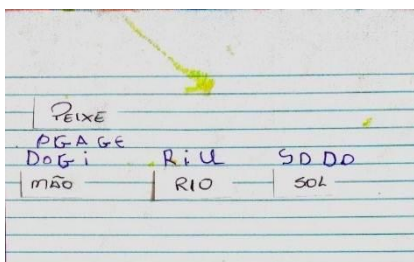 PEIXE
PGAGE
DOGi RiU SODO
MÃO RIO SOL